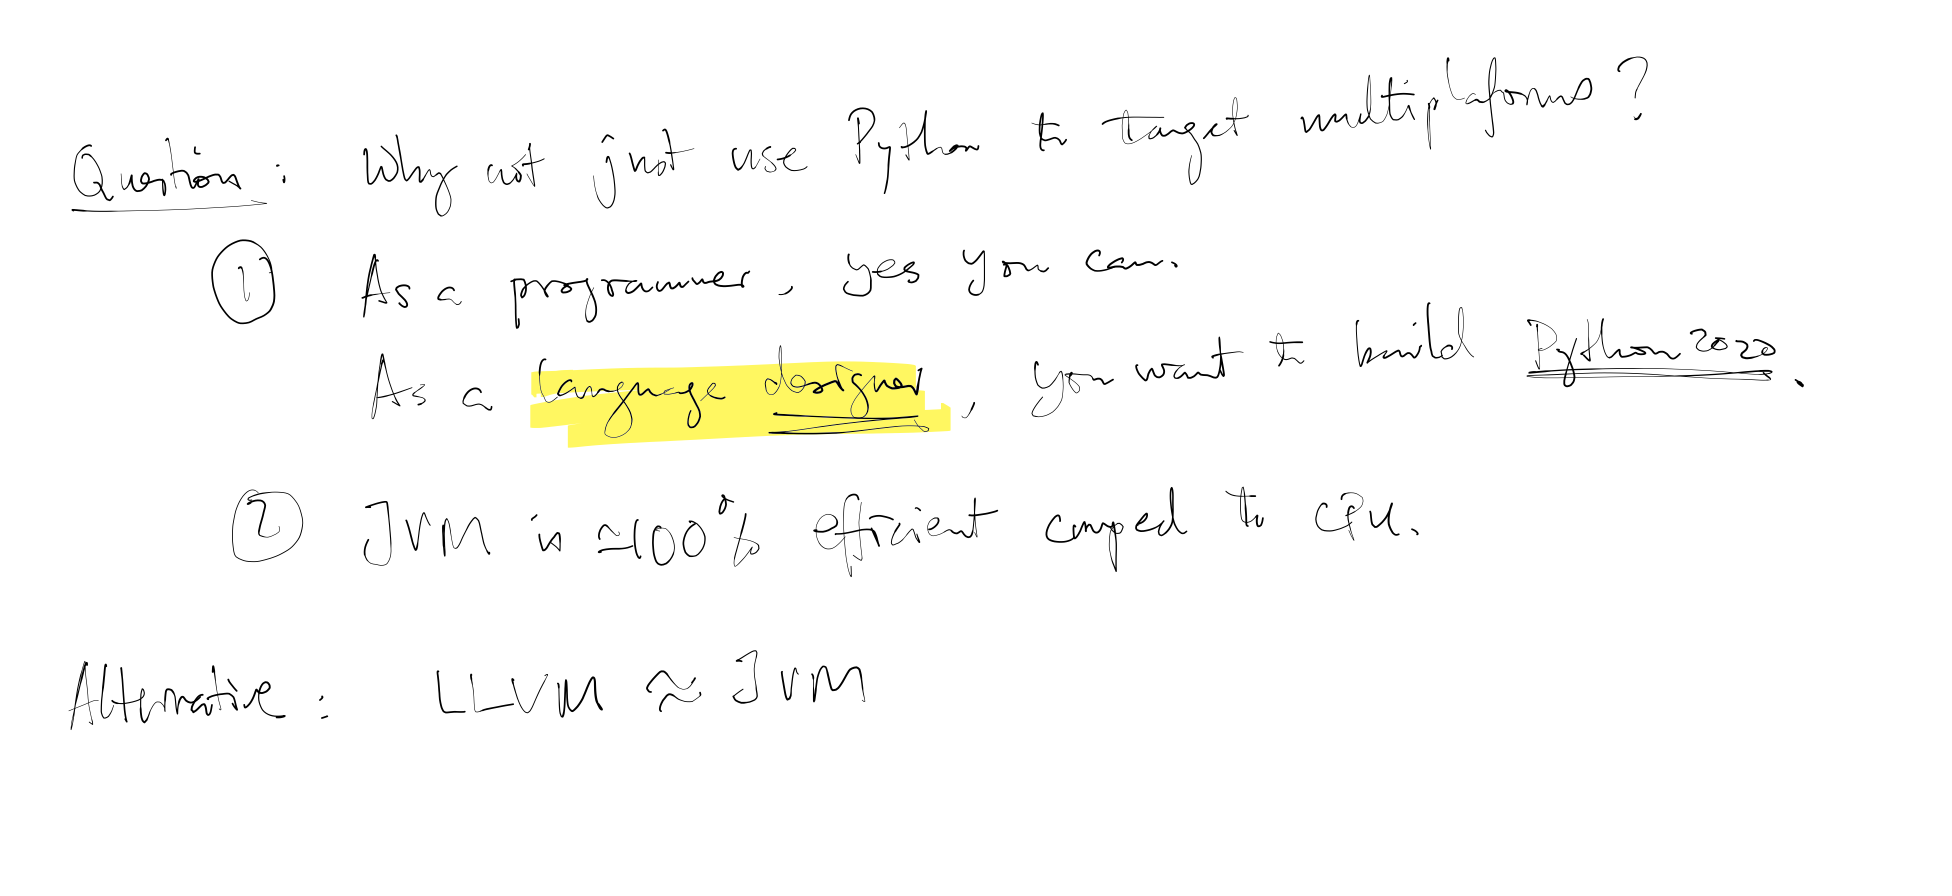 Question: Why not just use Python to target multiplaforms?
① As a programmer, yes you can.
As a language designer, you want to build Python 2020.
② JVM is ≃100% efficient comped to CPU.
Alternative: LLVM ≈ JVM